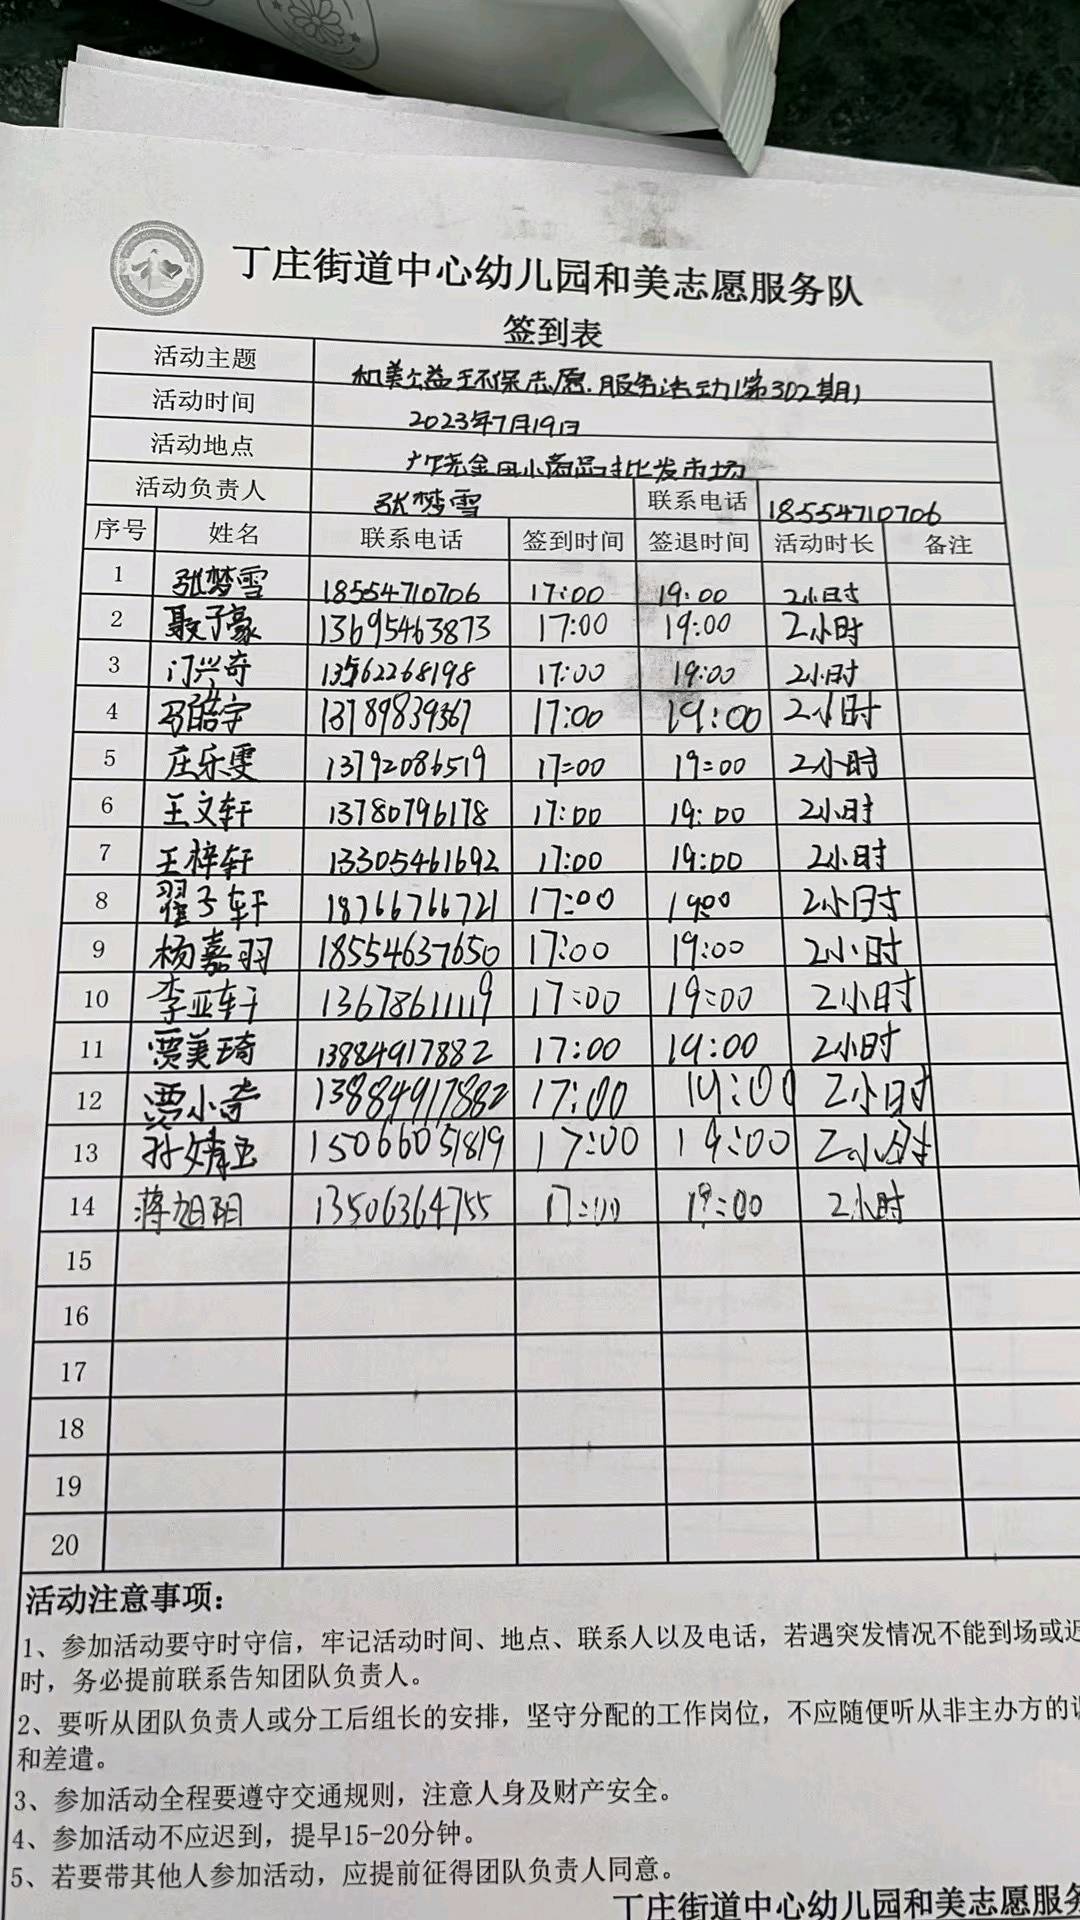 丁庄街道中心幼儿园和美志愿服务队
签到表
活动主题 和美公益环保志愿服务活动(第302期)
活动时间 2023年7月19日
活动地点 广饶金田小商品批发市场
活动负责人 张梦雪 联系电话 18554710706
序号 姓名 联系电话 签到时间 签退时间 活动时长 备注
1 张梦雪 18554710706 17:00 19:00 2小时
2 聂子豪 13695463873 17:00 19:00 2小时
3 门兴奇 13562268198 17:00 19:00 2小时
4 马皓宇 13789839367 17:00 19:00 2小时
5 庄乐雯 13792086519 17:00 19:00 2小时
6 王文轩 13780796178 17:00 19:00 2小时
7 王梓轩 13305461692 17:00 19:00 2小时
8 翟子轩 18766766721 17:00 19:00 2小时
9 杨嘉羽 18554637650 17:00 19:00 2小时
10 李亚轩 13678611119 17:00 19:00 2小时
11 贾美琦 13884917882 17:00 19:00 2小时
12 贾小奇 13884917882 17:00 19:00 2小时
13 孙婧 15066051819 17:00 19:00 2小时
14 蒋旭阳 13506364755 17:00 19:00 2小时
15
16
17
18
19
20
活动注意事项：
1、参加活动要守时守信，牢记活动时间、地点、联系人以及电话，若遇突发情况不能到场或迟
时，务必提前联系告知团队负责人。
2、要听从团队负责人或分工后组长的安排，坚守分配的工作岗位，不应随便听从非主办方的
和差遣。
3、参加活动全程要遵守交通规则，注意人身及财产安全。
4、参加活动不应迟到，提早15-20分钟。
5、若要带其他人参加活动，应提前征得团队负责人同意。
丁庄街道中心幼儿园和美志愿服务